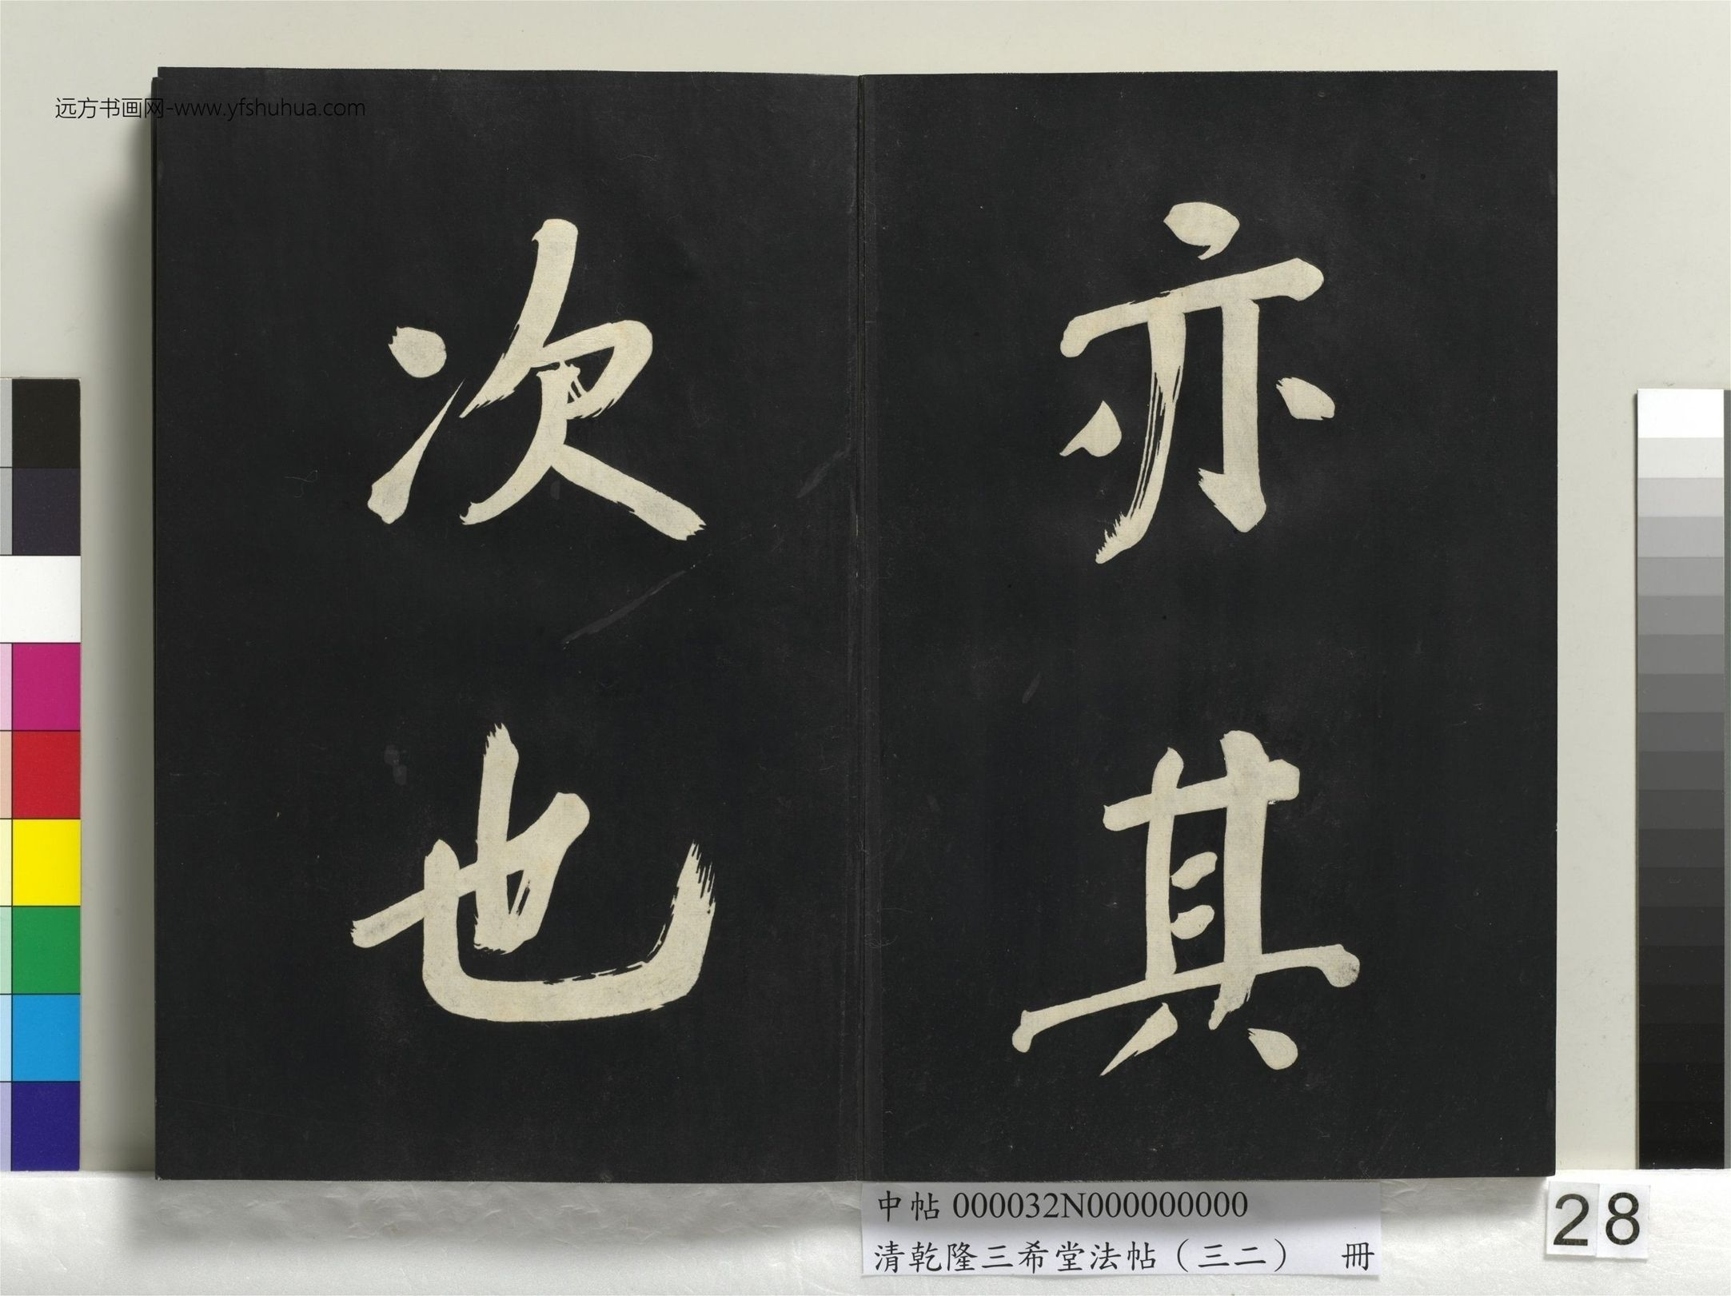 远方书画网-www.yfshuhua.com
亦其
次也
中帖 000032N000000000
清乾隆三希堂法帖（三二） 冊
28